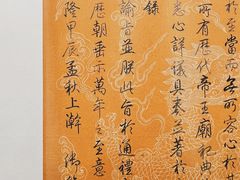 於至當而無容心於其
所有歷代帝王廟祀典
悉心詳議具奏並著於
錄
諭旨並朕此旨於通禮
歷朝垂示萬年之至意
隆甲辰孟秋上澣